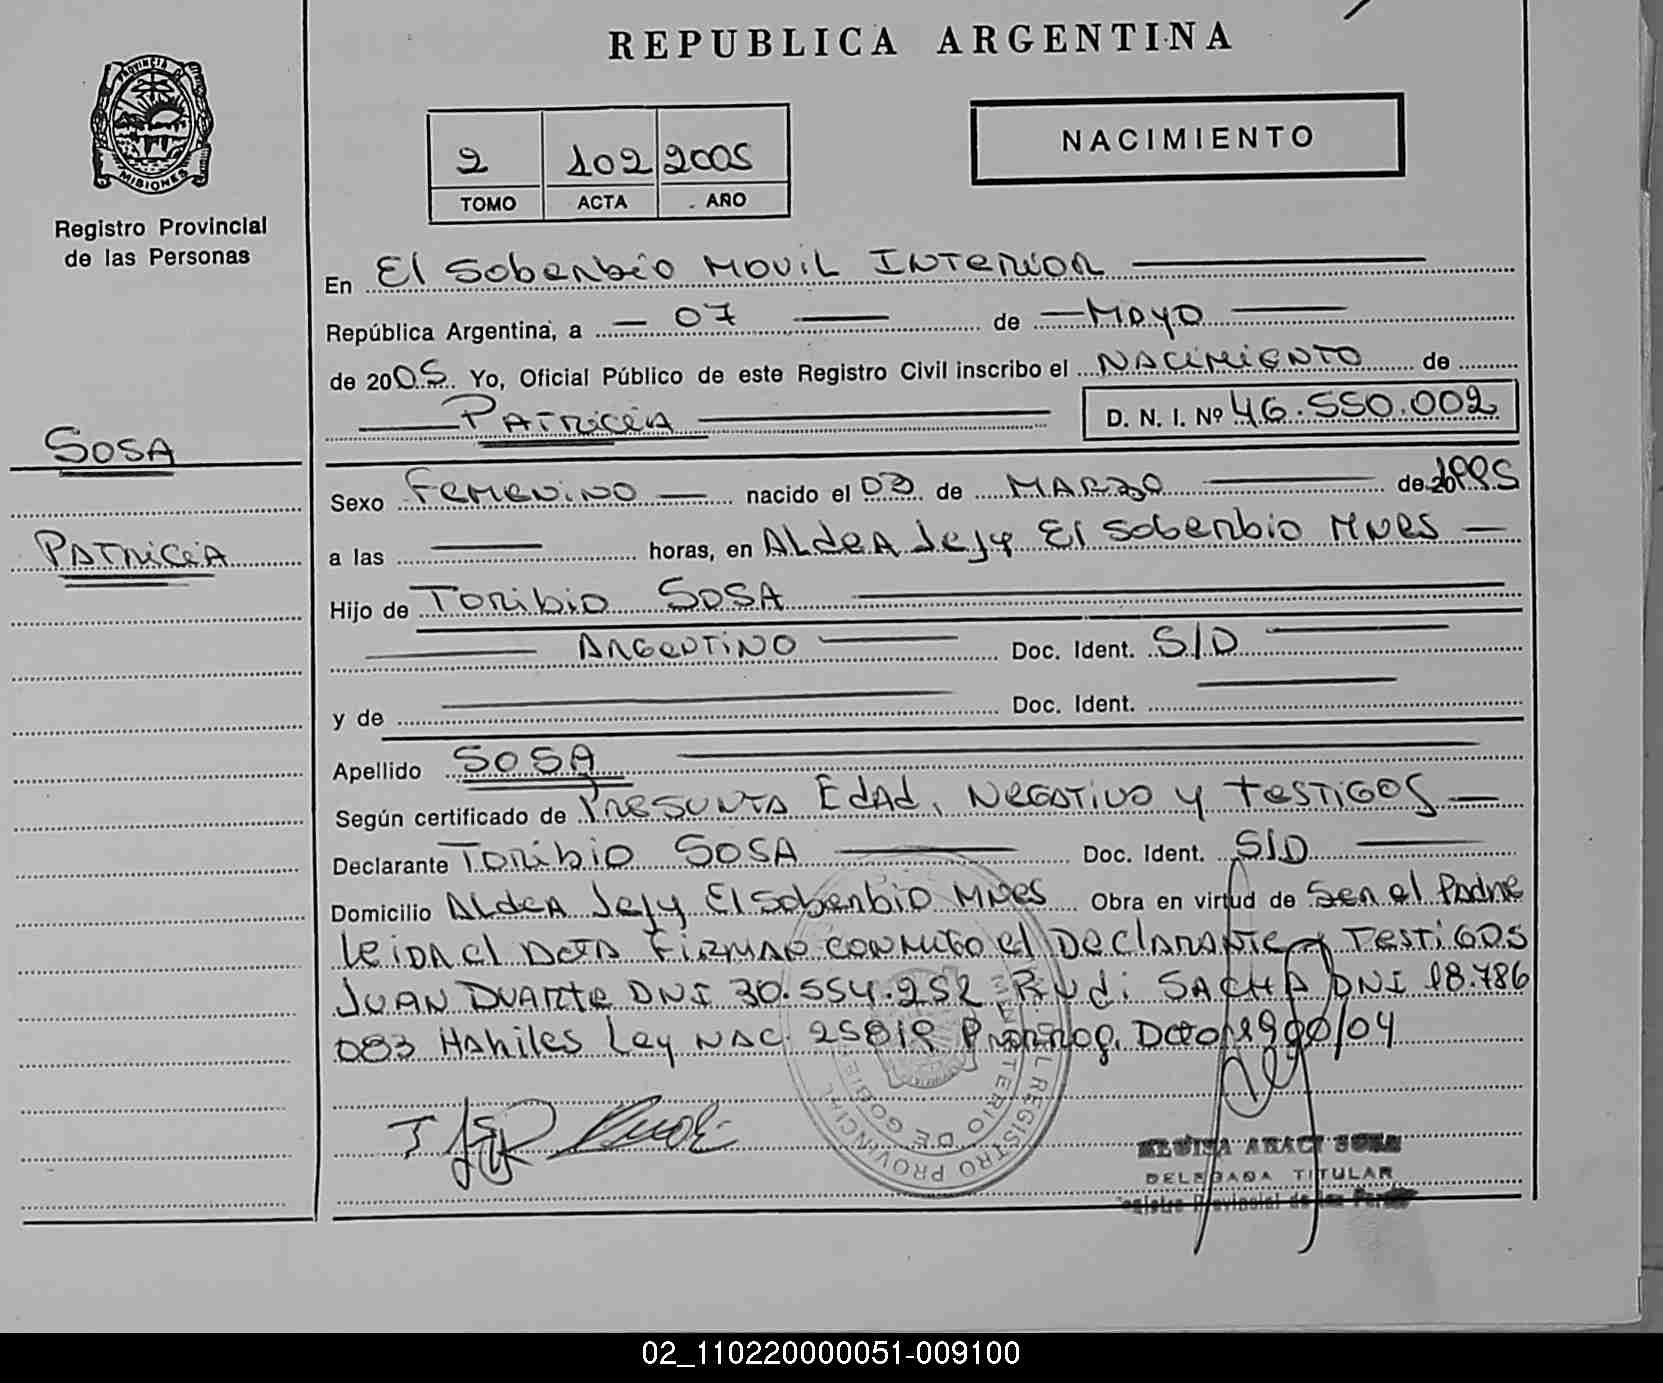 REPUBLICA ARGENTINA
PROVINCIA DE
MISIONES
Registro Provincial
de las Personas
NACIMIENTO
2 102 2005
TOMO ACTA AÑO
En El Soberbio MOVIL INTERIOR
República Argentina, a 07 de MAYO
de 2005 Yo, Oficial Público de este Registro Civil inscribo el NACIMIENTO de
PATRICIA D. N. I. Nº 46.550.002
SOSA
PATRICIA
Sexo Femenino nacido el 02 de MARZO de 20 1995
a las horas, en ALdeA Jejy El Soberbio MNES
Hijo de Toribio SOSA
ARGENTINO Doc. Ident. S/D
y de Doc. Ident.
Apellido SOSA
Según certificado de PRESUNTA EdAd, NEGATIVO y TESTIGOS
Declarante Toribio SOSA Doc. Ident. S/D
Domicilio ALdeA Jejy El Soberbio MNES Obra en virtud de Ser el Padre
leida el Acta FIRMAN CONMIGO el DeclarANTe y TESTIGOS
JUAN DUARTE DNI 30.554.252 Rudi SACHA DNI 18.786
083 Habiles Ley NAC. 25819 Prorrog. Dcto 1990/04
REGISTRO PROVINCIAL
MINISTERIO DE GOBIE
DELEGADA TITULAR
Registro Provincial de las Personas
02_110220000051-009100